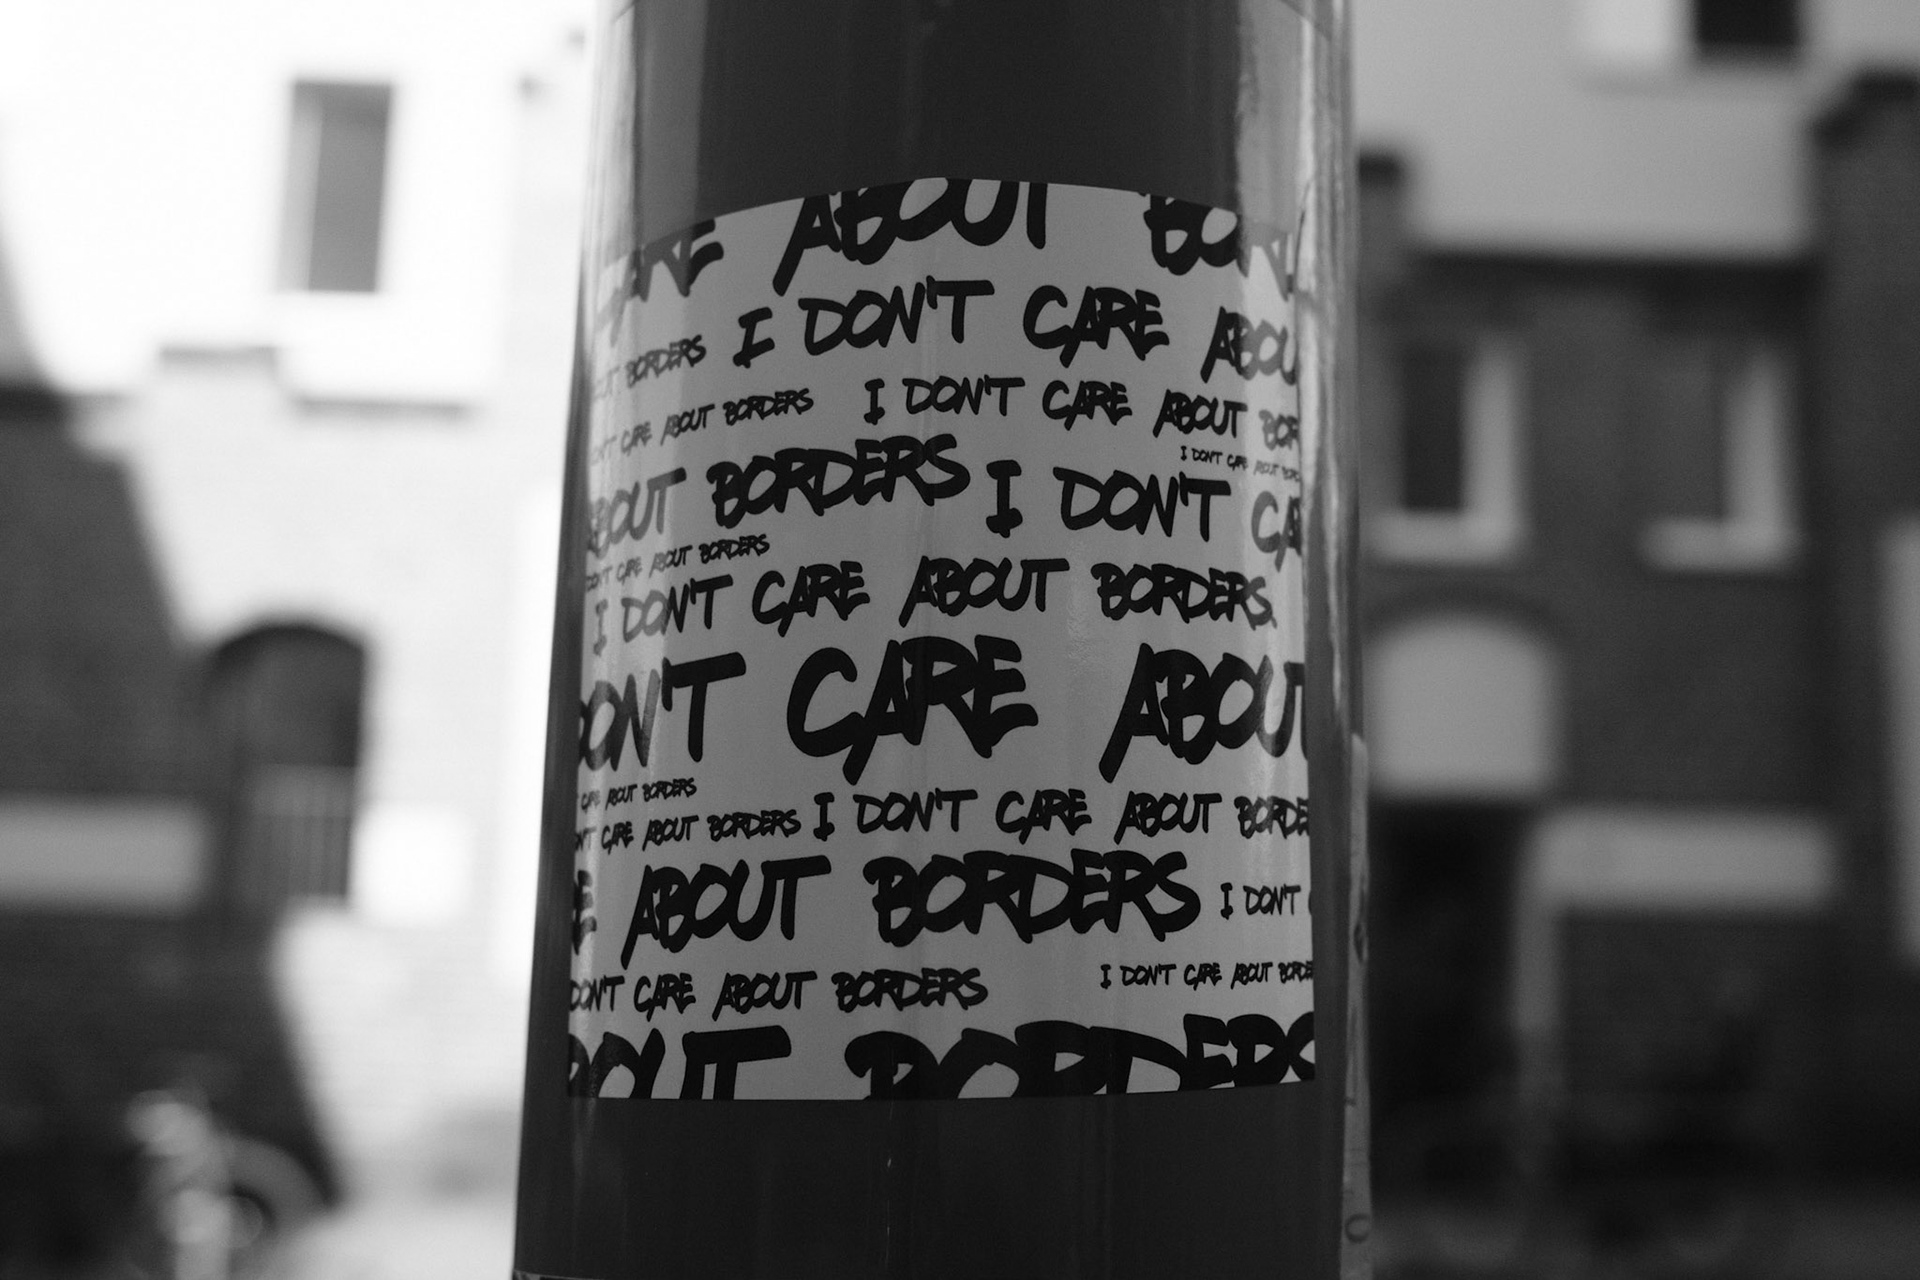 CARE ABOUT BORD
ABOUT BORDERS I DON'T CARE ABOU
DON'T CARE ABOUT BORDERS I DON'T CARE ABOUT BOR
I DON'T CARE ABOUT BORD
ABOUT BORDERS I DON'T CA
DON'T CARE ABOUT BORDERS
I DON'T CARE ABOUT BORDERS
DON'T CARE ABOUT
CARE ABOUT BORDERS
DON'T CARE ABOUT BORDERS I DON'T CARE ABOUT BORDE
E ABOUT BORDERS I DON'T
DON'T CARE ABOUT BORDERS I DON'T CARE ABOUT BORDE
BOUT BORDERS